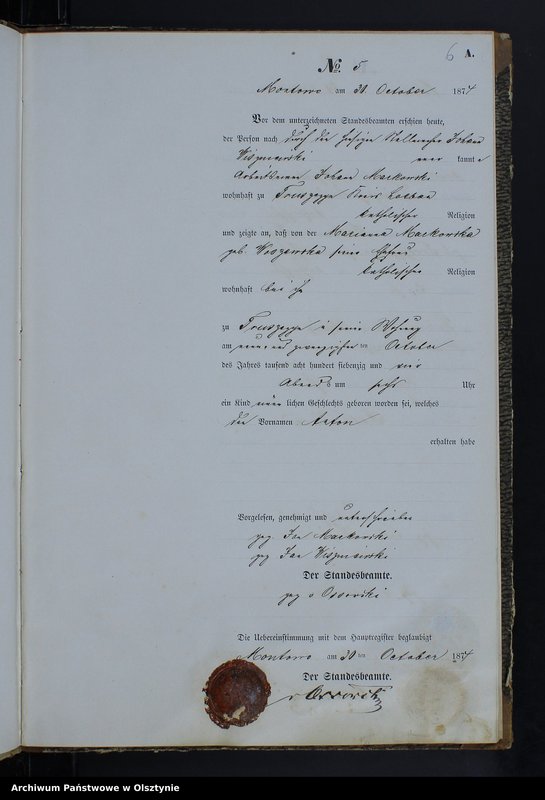 6 A.
№ 5
Montowo am 30. October 1874
Vor dem unterzeichneten Standesbeamten erschien heute,
der Person nach durch den Stellmacher Johann
Wiszniewski kannt
Arbeitsmann Johann Markowski
wohnhaft zu Truszczyn Kreis Loebau
katholischer Religion
und zeigte an, daß von der Marianna Markowska
geb. seine Ehefrau
katholischer Religion
wohnhaft bei ihm
zu Truszczyn in seiner Wohnung
am neun und zwanzigsten ten October
des Jahres tausend acht hundert siebenzig und vier
Abends um sechs Uhr
ein Kind männlichen Geschlechts geboren worden sei, welches
den Vornamen Anton
erhalten habe
Vorgelesen, genehmigt und unterschrieben
gez. Jan Markowski
gez. Jan Wiszniewski
Der Standesbeamte.
gez. v Ossowski
Die Uebereinstimmung mit dem Hauptregister beglaubigt
Montowo am 30 ten October 1874
Der Standesbeamte.
v Ossowski
Archiwum Państwowe w Olsztynie